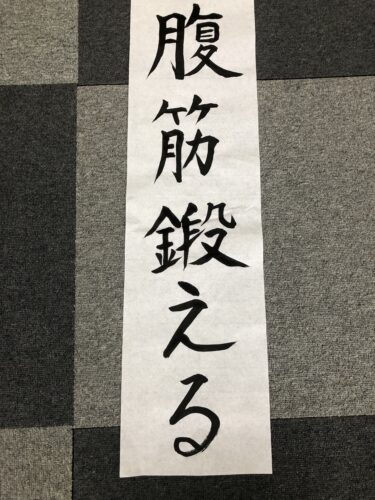 腹筋鍛える